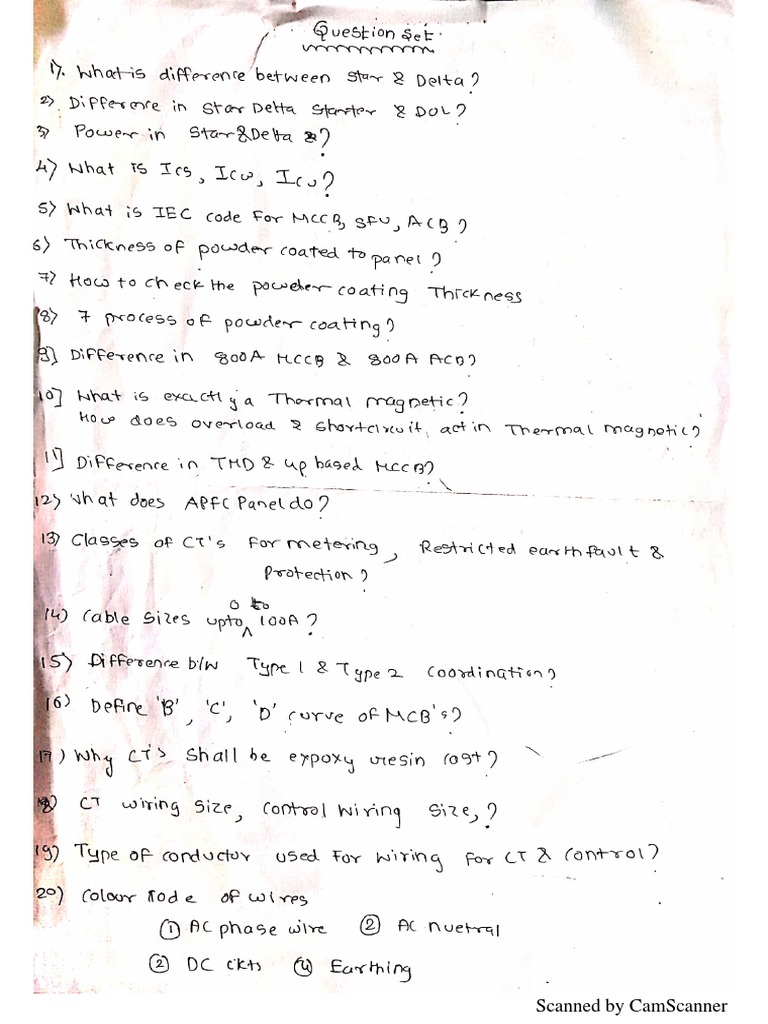 Question Set.
1). What is difference between Star & Delta?
2) Difference in Star Delta Starter & DOL?
3) Power in Star & Delta &?
4) What is Ics, Icw, Icu?
5) What is IEC code for MCCB, SFU, ACB?
6) Thickness of powder coated to panel?
7) How to check the powder coating Thickness
8) 7 process of powder coating?
9] Difference in 800A MCCB & 800A ACB?
10] What is exactly a Thermal magnetic?
How does overload & shortcircuit, act in Thermal magnetic?
11] Difference in TMD & up based MCCB?
12) What does APFC Panel do?
13) Classes of CT's for metering, Restricted earth fault &
Protection?
14) Cable sizes upto 0 to 100A?
15) Difference b/w Type 1 & Type 2 coordination?
16) Define 'B', 'C', 'D' curve of MCB's?
17) Why CT's shall be expoxy resin cost?
18) CT wiring size, control wiring size,?
19) Type of conductor used for wiring for CT & control?
20) Colour code of wires
① AC phase wire ② AC nuetral
② DC ckts ④ Earthing
Scanned by CamScanner